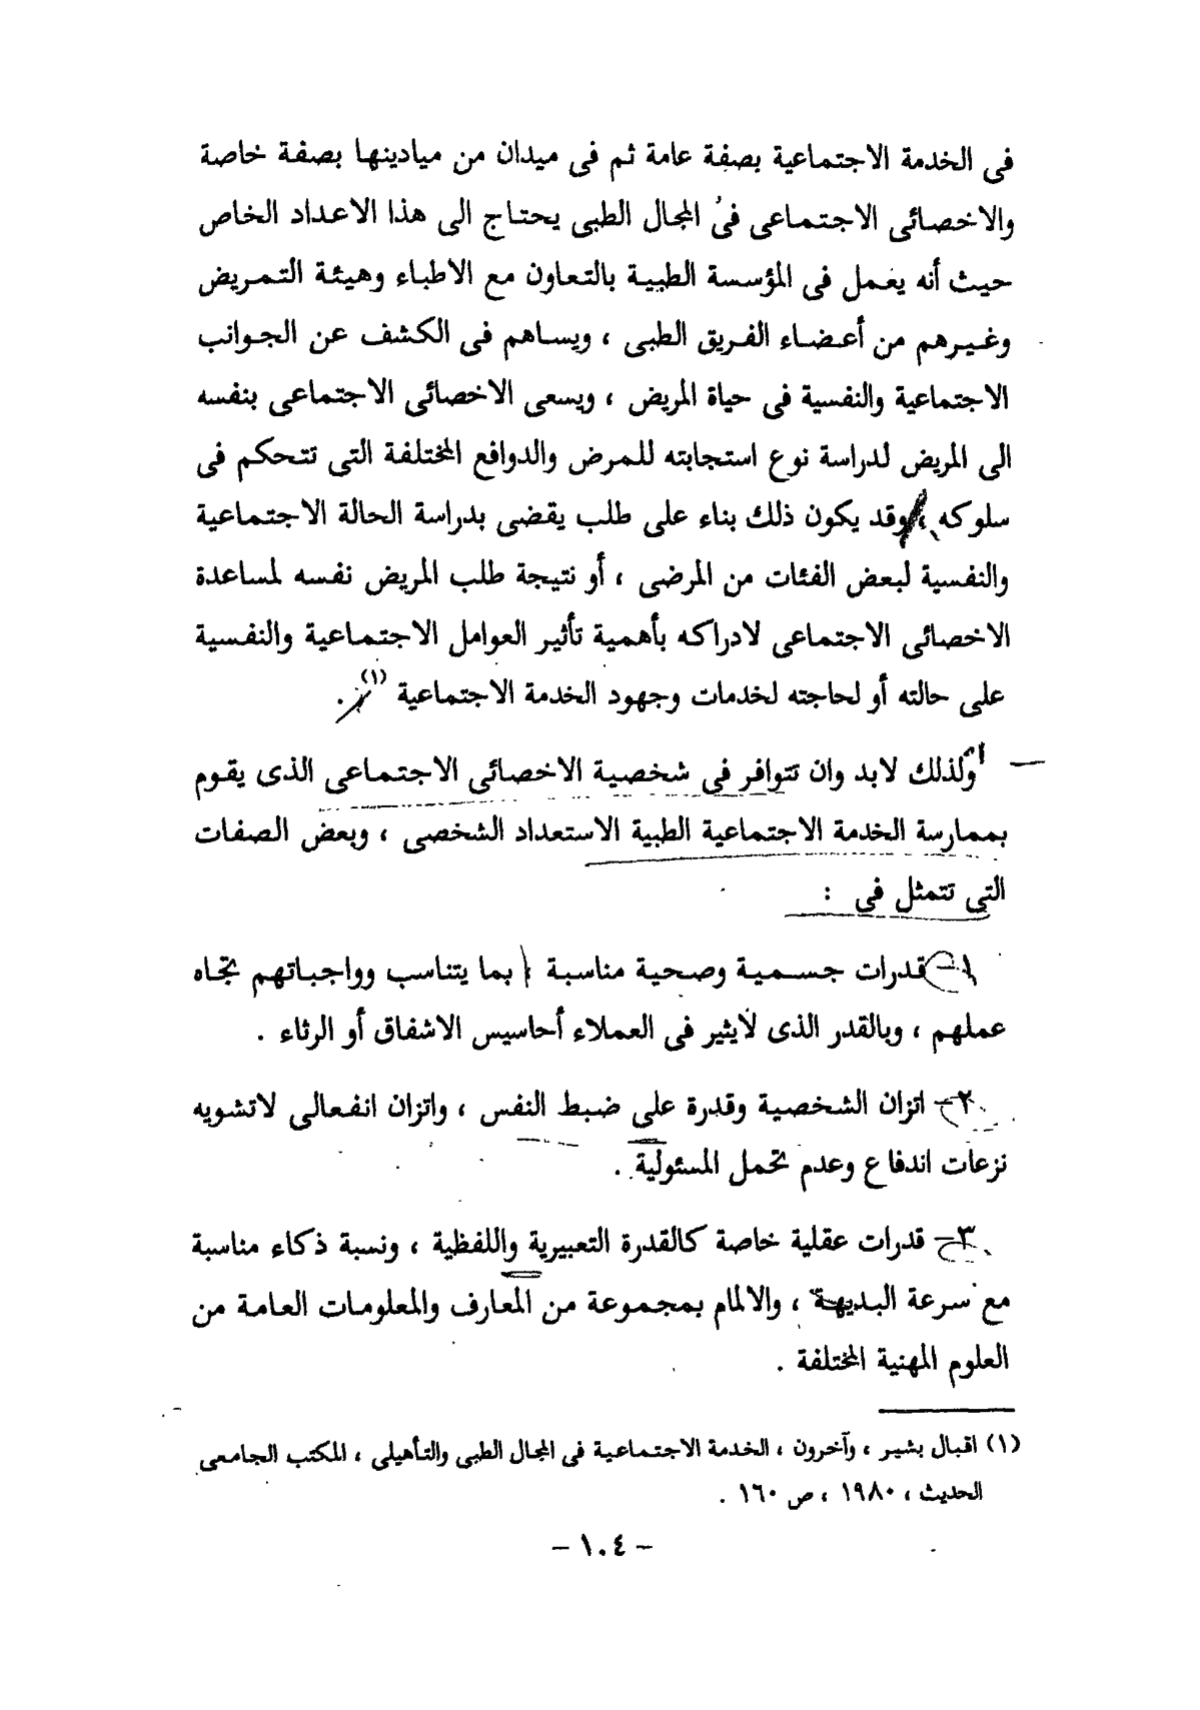 فى الخدمة الاجتماعية بصفة عامة ثم فى ميدان من ميادينها بصفة خاصة
والاخصائى الاجتماعى فى المجال الطبى يحتاج الى هذا الاعداد الخاص
حيث أنه يعمل فى المؤسسة الطبية بالتعاون مع الاطباء وهيئة التمريض
وغيرهم من أعضاء الفريق الطبى ، ويساهم فى الكشف عن الجوانب
الاجتماعية والنفسية فى حياة المريض ، ويسعى الاخصائى الاجتماعى بنفسه
الى المريض لدراسة نوع استجابته للمرض والدوافع المختلفة التى تتحكم فى
سلوكه ، وقد يكون ذلك بناء على طلب يقضى بدراسة الحالة الاجتماعية
والنفسية لبعض الفئات من المرضى ، أو نتيجة طلب المريض نفسه لمساعدة
الاخصائى الاجتماعى لادراكه بأهمية تأثير العوامل الاجتماعية والنفسية
على حالته أو لحاجته لخدمات وجهود الخدمة الاجتماعية (١) .
وكذلك لابد وان تتوافر فى شخصية الاخصائى الاجتماعى الذى يقوم
بممارسة الخدمة الاجتماعية الطبية الاستعداد الشخصى ، وبعض الصفات
التى تتمثل فى :
١- قدرات جسمية وصحية مناسبة بما يتناسب وواجباتهم تجاه
عملهم ، وبالقدر الذى لايثير فى العملاء أحاسيس الاشفاق أو الرثاء .
٢- اتزان الشخصية وقدرة على ضبط النفس ، واتزان انفعالى لاتشوبه
نزعات اندفاع وعدم تحمل المسئولية .
٣- قدرات عقلية خاصة كالقدرة التعبيرية واللفظية ، ونسبة ذكاء مناسبة
مع سرعة البديهة ، والالمام بمجموعة من المعارف والمعلومات العامة من
العلوم المهنية المختلفة .
(١) اقبال بشير ، وآخرون ، الخدمة الاجتماعية فى المجال الطبى والتأهيلى ، المكتب الجامعى
الحديث ، ١٩٨٠ ، ص ١٦٠ .
- ١٠٤ -